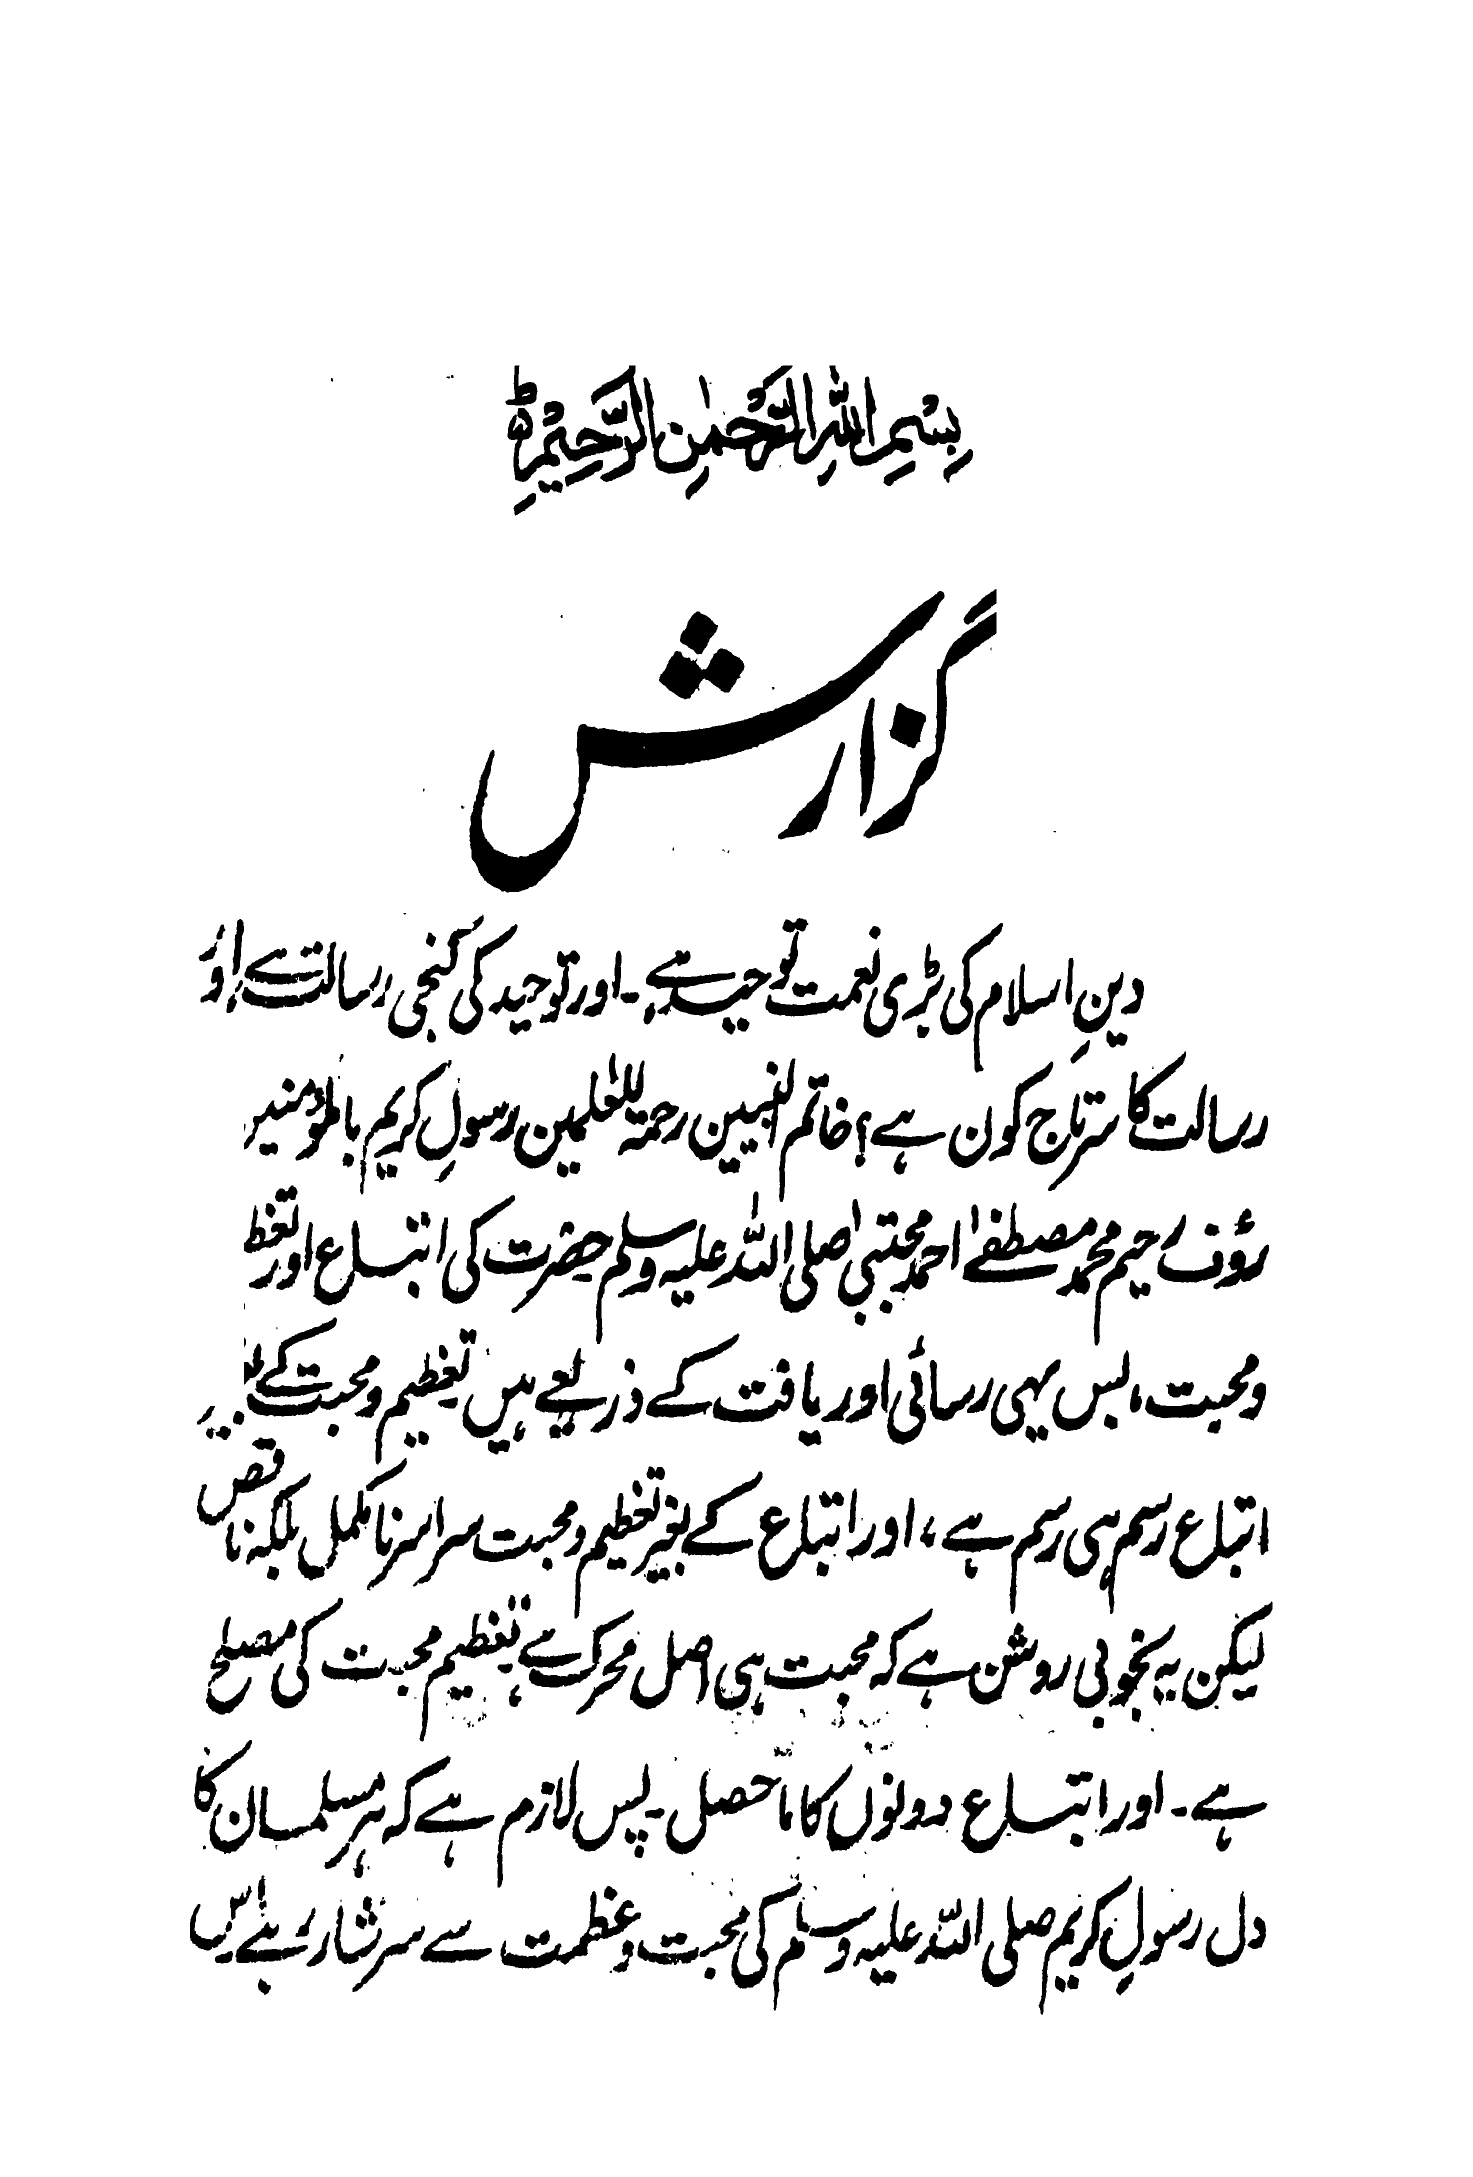 بِسْمِ اللهِ الرَّحْمٰنِ الرَّحِيْمِ ط
گزارش
دینِ اسلام کی بڑی نعمت توحید ہے۔ اور توحید کی کنجی رسالت ہے اور
رسالت کا سرتاج کون ہے؟ خاتم النبیین رحمۃ للعٰلمین رسولِ کریم
رؤف رحیم محمد مصطفےٰ احمد مجتبیٰ صلی اللہ علیہ وسلم حضرت کی اتباع اور
و محبت، بس یہی رسائی اور یافت کے ذریعے ہیں تعظیم و محبت کے
اتباع رسم ہی رسم ہے، اور اتباع کے بغیر تعظیم و محبت سراسر نامکمل بلکہ ناقص
لیکن یہ بخوبی روشن ہے کہ محبت ہی اصل محرک ہے تعظیم محبت کی مصلح
ہے۔ اور اتباع دونوں کا ماحصل۔ پس لازم ہے کہ ہر مسلمان کا
دل رسولِ کریم صلی اللہ علیہ وسلم کی محبت و عظمت سے سرشار رہے اس